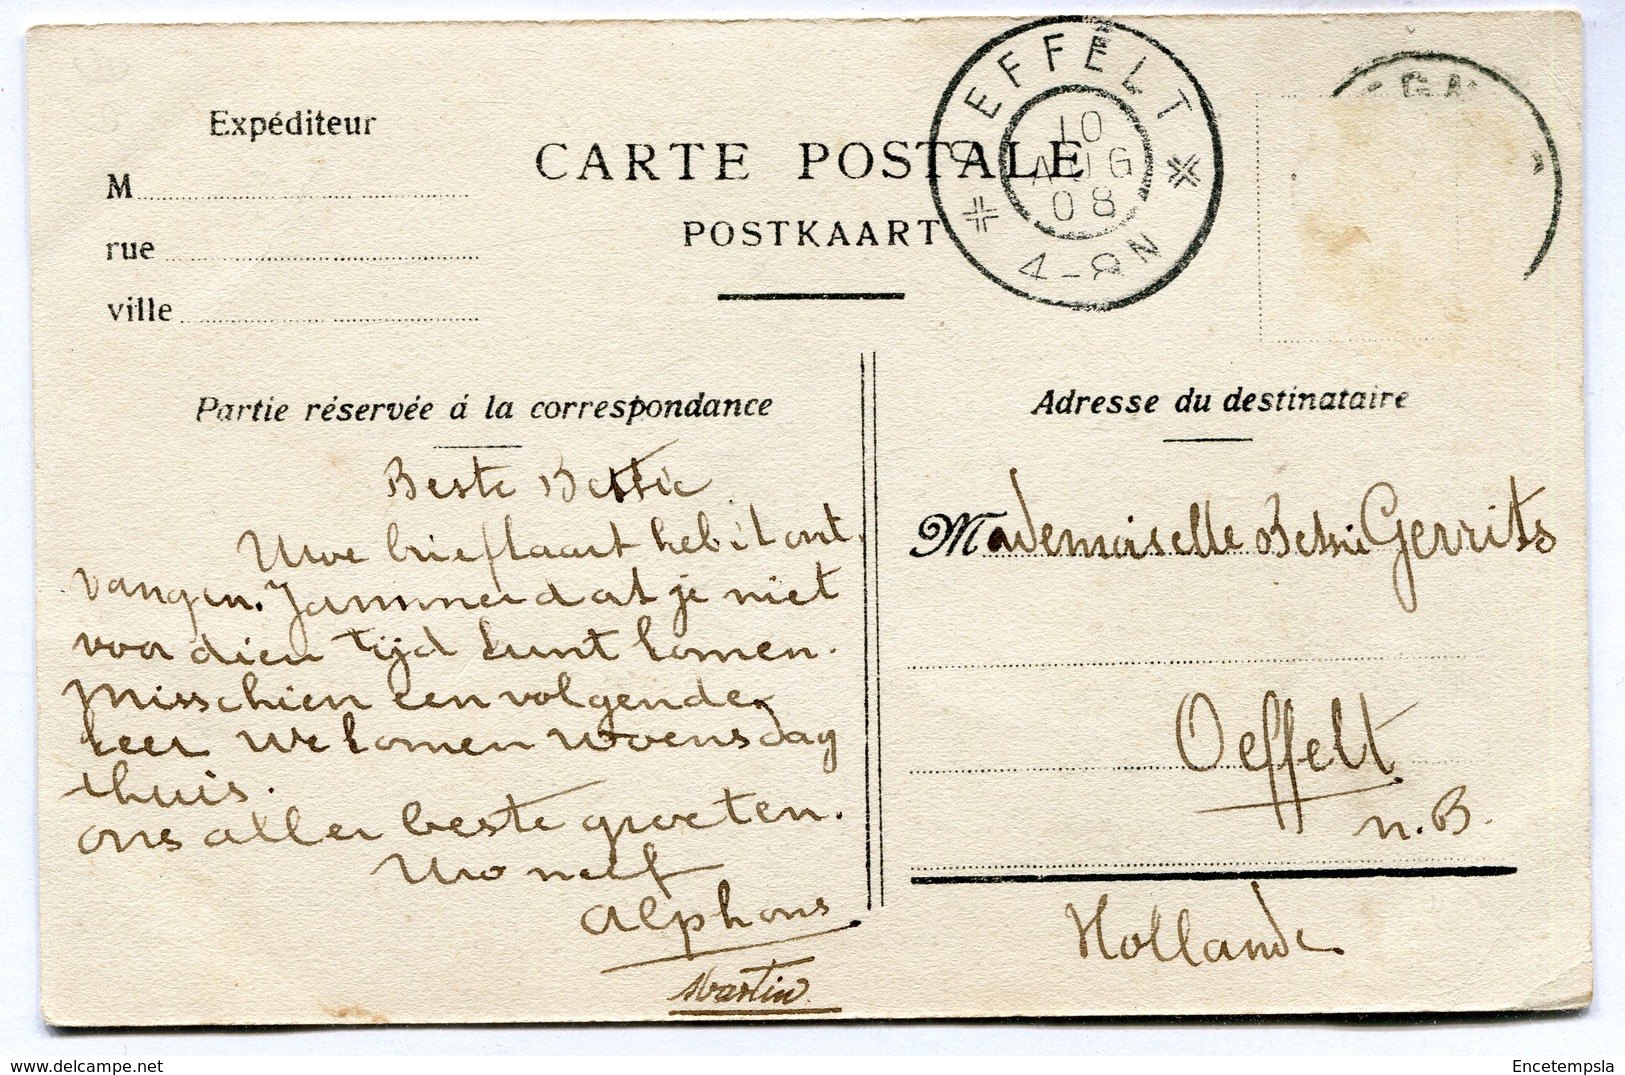 Expéditeur
M
rue
ville
CARTE POSTALE
POSTKAART
OEFFELT
10
AUG
08
4-8N
Partie réservée á la correspondance
Adresse du destinataire
Beste Bettie
Uwe brieflaart heb ik ont
vangen. Jammer dat je niet
voor dien tijd kunt komen.
Misschien een volgende
keer we komen woensdag
thuis.
ons aller beste groeten.
Uw neef
Alphons
Martin
Mademoiselle Gerrits
Oeffelt
N.B.
Hollande
Encetempsla